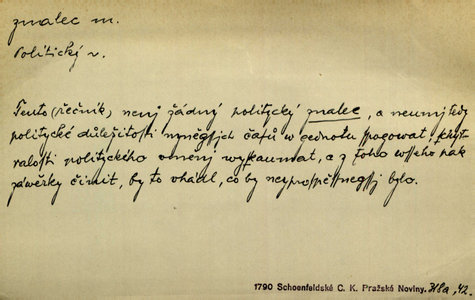 znalec m.
Politický z.
Tento (řečník) nenj žádný politycký znalec, a neumj tedy
politycké důležitosti nyněgssjch časů w gednotu spogowat, chyt-
ralosti polityckého uměnj wyskaumat, a z toho wsseho pak
záwěrky činit, by to uhádl, co by neyprospěssněgssj bylo.
1790 Schoenfeldské C. K. Pražské Noviny. 318a, 42.